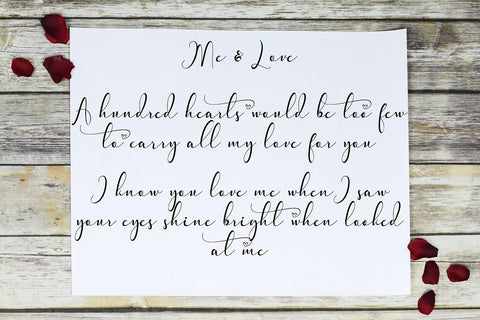 Me & Love
A hundred hearts would be too few
to carry all my love for you
I know you love me when I saw
your eyes shine bright when looked
at me